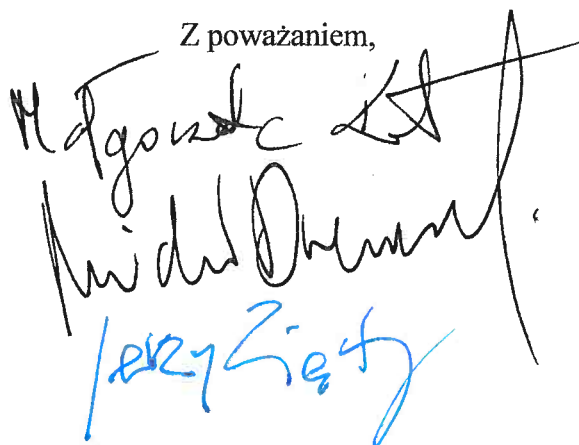 Z poważaniem,
Małgorzata
Michał
Jerzy Zięty